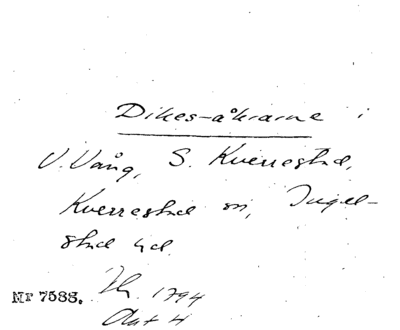 Dikes-åkrarne i
V. Vång, S. Kverrestad,
Kverrestad sn, Ingel-
stad hd.
Nr 7583. 1794
Akt 4